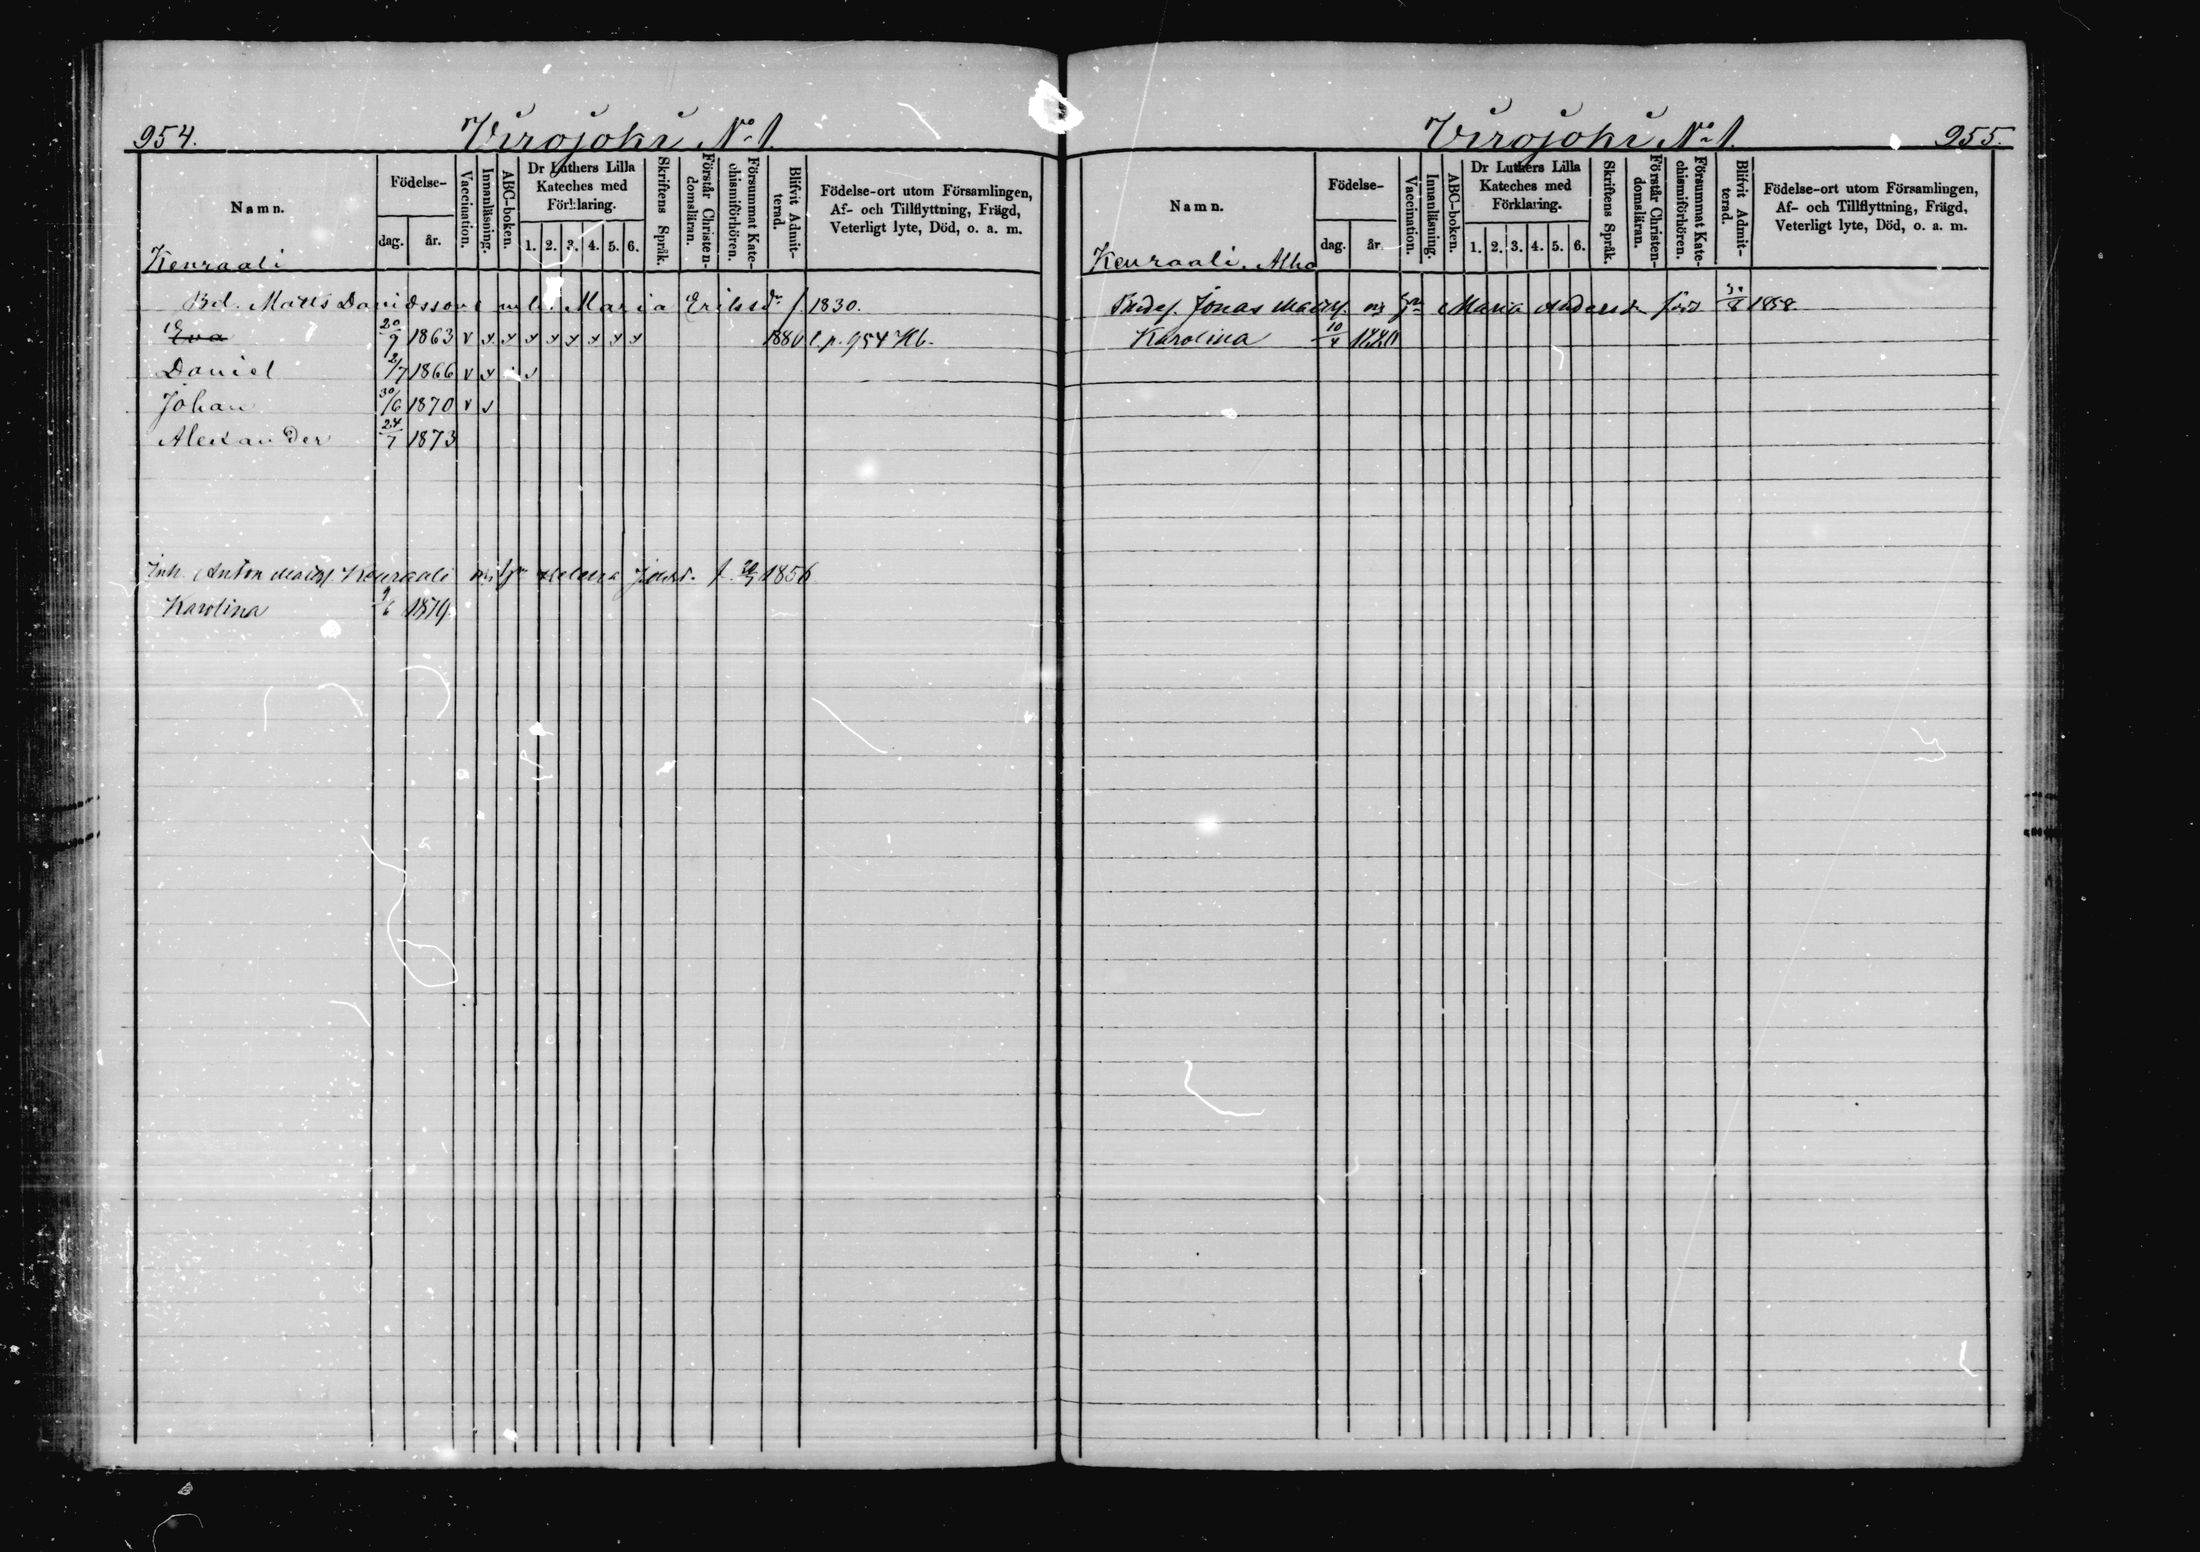 954. Virojoki No 1.
Namn. Födelse- dag. år. Vaccination. Innanläsning. ABC-boken. Dr Luthers Lilla Kateches med Förklaring. 1. 2. 3. 4. 5. 6. Skriftens Språk. Förstår Christendomsläran. Försummat Katechismiförhören. Blifvit Admitterad. Födelse-ort utom Församlingen, Af- och Tillflyttning, Frägd, Veterligt lyte, Död, o. a. m.
Kenraali
Bd. Matts Davidsson Maria Eriksd:r f. 1830.
Eva 20/9 1863 v x x x x x x x x 1880 l. p. 954 Kb.
Daniel 21/7 1866 v x
Johan 30/6 1870 v
Alexander 24/7 1873
Inh. Anton Matss. Kenraali Helena f. 1856
Karolina 9/6 1879
Virojoki No 1. 955.
Namn. Födelse- dag. år. Vaccination. Innanläsning. ABC-boken. Dr Luthers Lilla Kateches med Förklaring. 1. 2. 3. 4. 5. 6. Skriftens Språk. Förstår Christendomsläran. Försummat Katechismiförhören. Blifvit Admitterad. Födelse-ort utom Församlingen, Af- och Tillflyttning, Frägd, Veterligt lyte, Död, o. a. m.
Kenraali. Alho
Jonas Matss. Maria Andersd. född 30/8 1858.
Karolina 10/4 1880